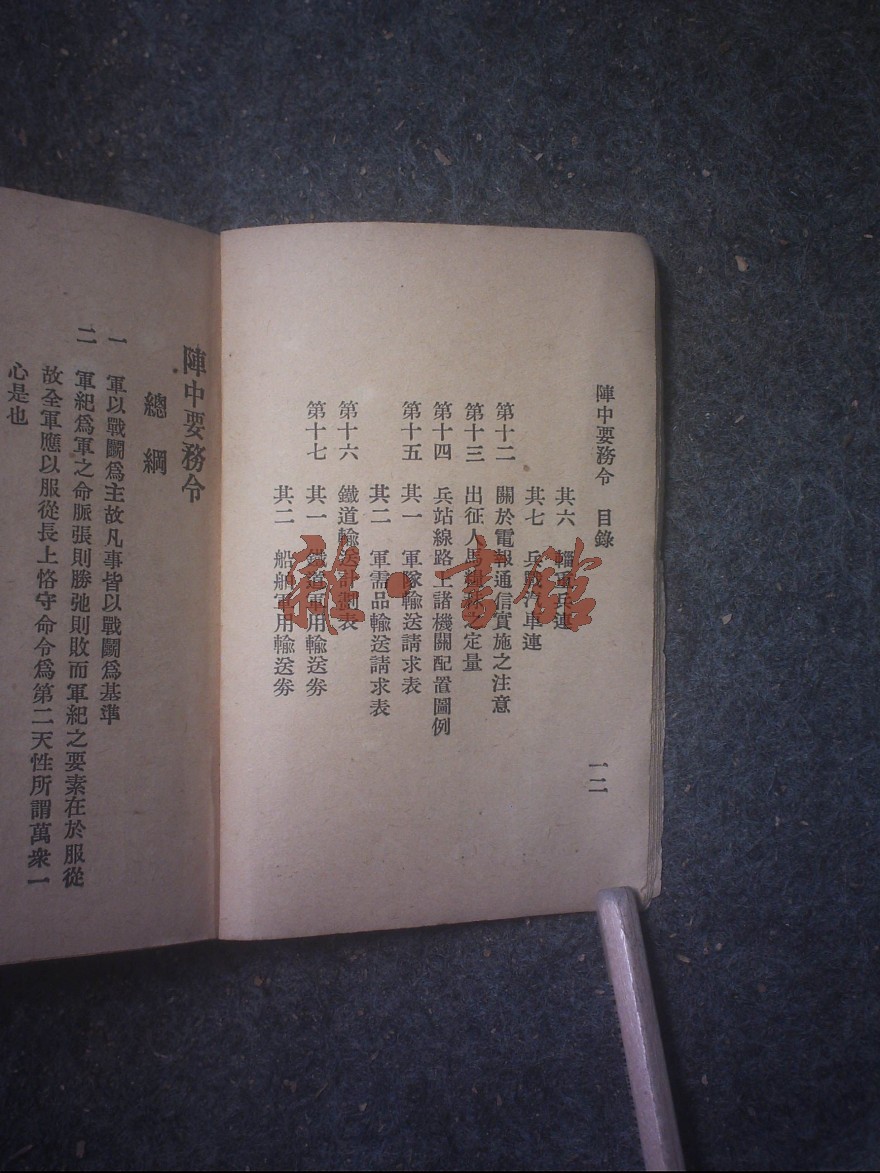 陣中要務令 目錄
一二
其六 輜重兵連
其七 兵戰汽車連
第十二 關於電報通信實施之注意
第十三 出征人馬糧秣之定量
第十四 兵站線路上諸機關配置圖例
第十五 其一 軍隊輸送請求表
其二 軍需品輸送請求表
第十六 鐵道輸送計劃表
第十七 其一 鐵道軍用輸送券
其二 船舶軍用輸送券
陣中要務令
總綱
一 軍以戰鬭爲主故凡事皆以戰鬭爲基準
二 軍紀爲軍之命脈張則勝弛則敗而軍紀之要素在於服從
故全軍應以服從長上恪守命令爲第二天性所謂萬衆一
心是也
雜·書館